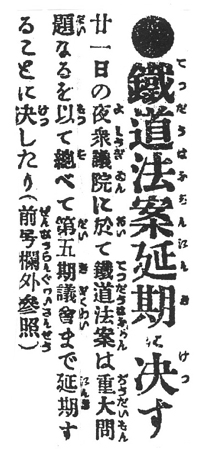 ●鐵道法案延期に決す
廿一日の夜衆議院に於て鐵道法案は重大問
題なるを以て總べて第五期議會まで延期す
ることに決したり(前号欄外參照)